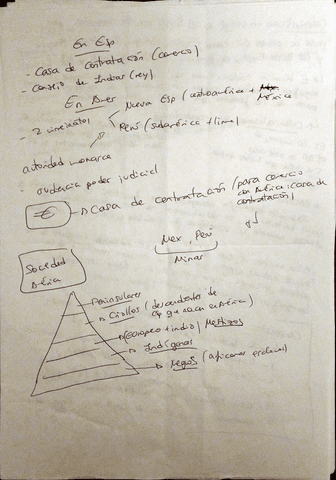 En Esp
- Casa de contratación (comercio)
- Consejo de Indias (rey)
En Amer
- 2 virreinatos
Nueva Esp (centroamérica + México
Perú (sudamérica + lima)
autoridad monarca
- audiencia poder judicial
€ → Casa de contratación (para comercio
con América: casa de
contratación)
Mex, Perú
Minas
Sociedad
Peninsulares
Criollos (descendientes de
esp que nacen en América)
(europeo + indio) Mestizos
Indígenas
Negros (africanos esclavos)